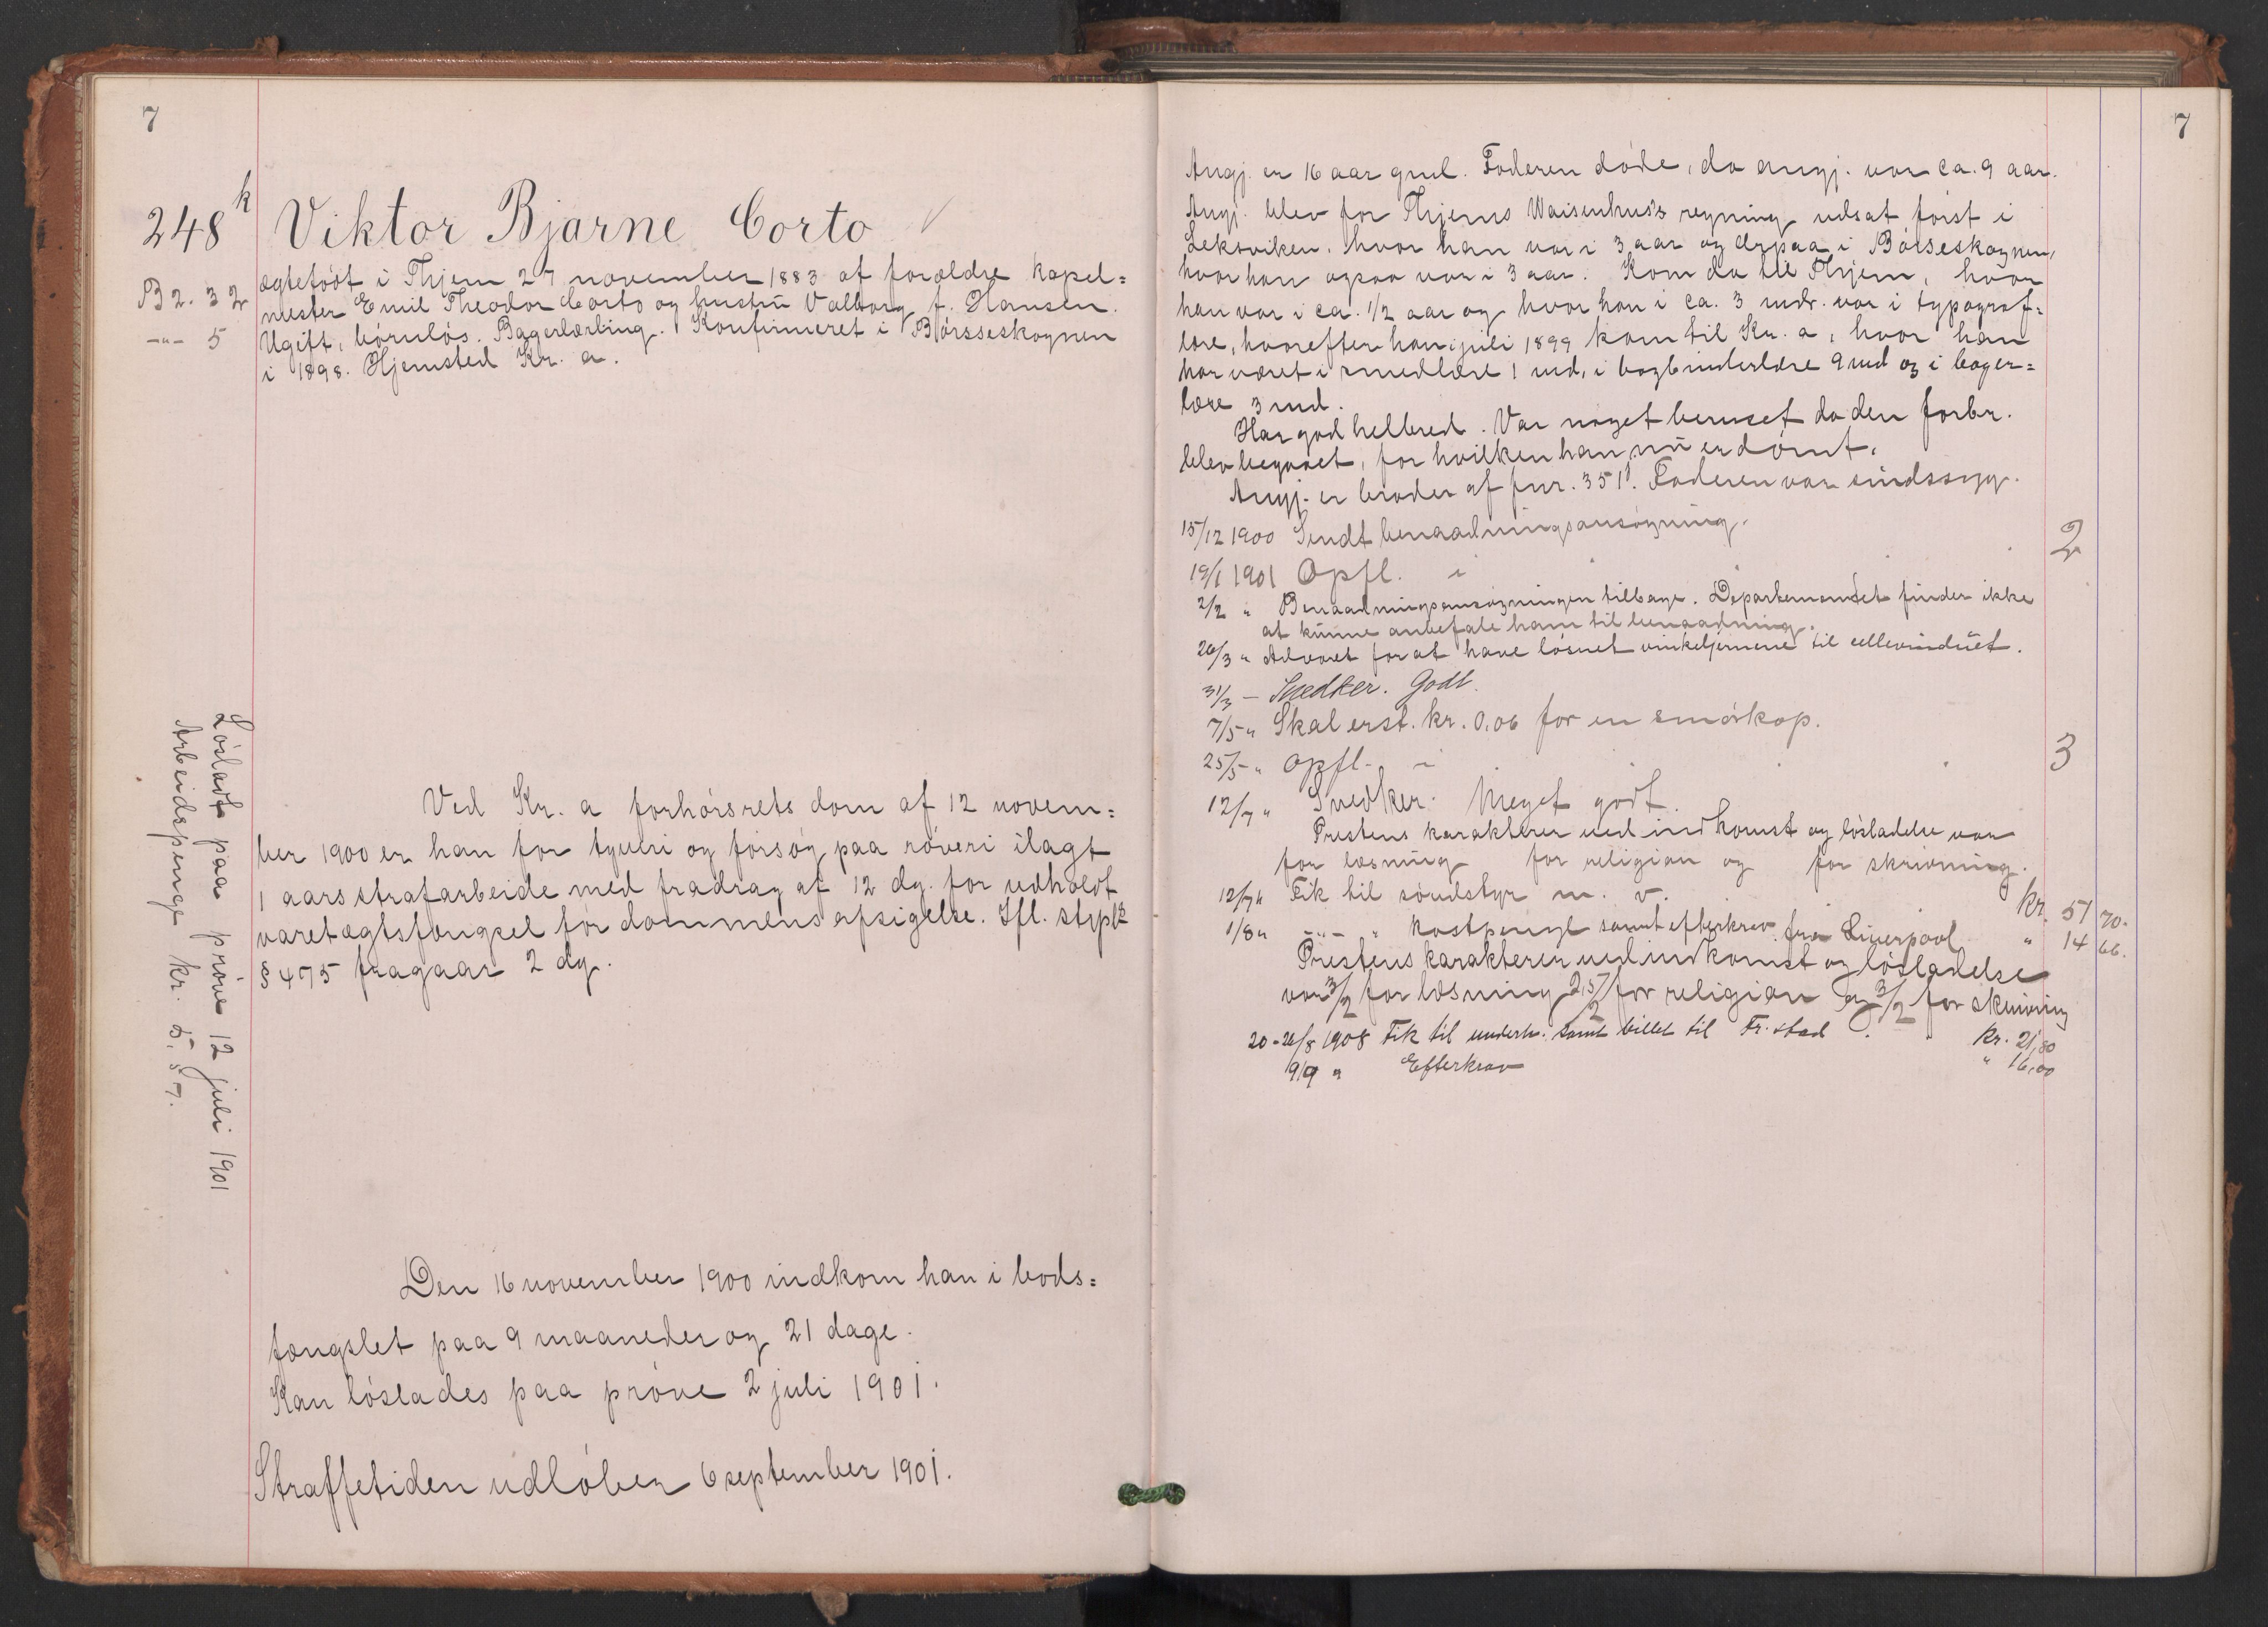 7
248 k Viktor Bjarne Corto
B 2. 32
-"- 5
ægtefødt i Thjem 27 november 1883 af forældre kapel=
mester Emil Theodor Corto og hustru Valborg f. Hansen.
Ugift, børnløs. Bagerlærling. Konfirmeret i Børsseskognen
i 1898. Hjemsted Kr. a.
Løsladt paa prøve 12 juli 1901
Arbeidspenge kr. 5.57.
Ved Kr. a forhørsrets dom af 12 novem=
ber 1900 er han for tyveri og forsøg paa røveri ilagt
1 aars strafarbeide med fradrag af 12 dg. for udholdt
varetægtsfængsel før dommens afsigelse. Ifl. stvpl
§ 475 fragaar 2 dg.
Den 16 november 1900 indkom han i bods=
fængslet paa 9 maaneder og 21 dage.
Kan løslades paa prøve 2 juli 1901.
Straffetiden udløber 6 september 1901.
7
Angj. er 16 aar gml. Faderen døde, da angj. var ca. 9 aar.
Angj. blev for Thjems Waisenhus's regning udsat først i
Leksviken, hvor han var i 3 aar og derpaa i Børseskognen,
hvor han ogsaa var i 3 aar. Kom da til Thjem, hvor
han var i ca. 1/2 aar og hvor han i ca. 3 mdr. var i typograf=
lære, hvorefter han i juli 1899 kom til Kr. a, hvor han
har været i smedlære 1 md, i bogbinderlære 9 md og i bager=
lære 3 md.
Har god helbred. Var noget beruset da den forbr.
blev begaaet, for hvilken han nu er dømt.
Angj. er broder af fnr. 351. Faderen var sindssyg.
15/12 1900 Sendt benaadningsansøgning. 2
19/1 1901 Opfl. i
2/2 " Benaadningsansøgningen tilbage. Departementet finder ikke
at kunne anbefale ham til benaadning.
26/3 " Advaret for at have løsnet vinkeljernene til cellevinduet.
31/3 - Snedker. Godt.
7/5 " Skal erst. kr. 0,06 for en smørkop.
25/5 " Opfl. i 3
12/7 " Snedker. Meget godt.
Prestens karakterer ved indkomst og løsladelse var
for læsning for religion og for skrivning.
12/7 " Fik til søudstyr m. v. kr. 51 70.
1/8 " -"- " Kostpenge samt efterkrav fra Liverpool " 14 66.
Prestens karakterer ved indkomst og løsladelse
var 3/2 for læsning 2,5/2 for religion og 3/2 for skrivning
20-26/8 1908 Fik til underh. samt billet til Fr.stad kr. 21,80
9/9 " Efterkrav " 16,00